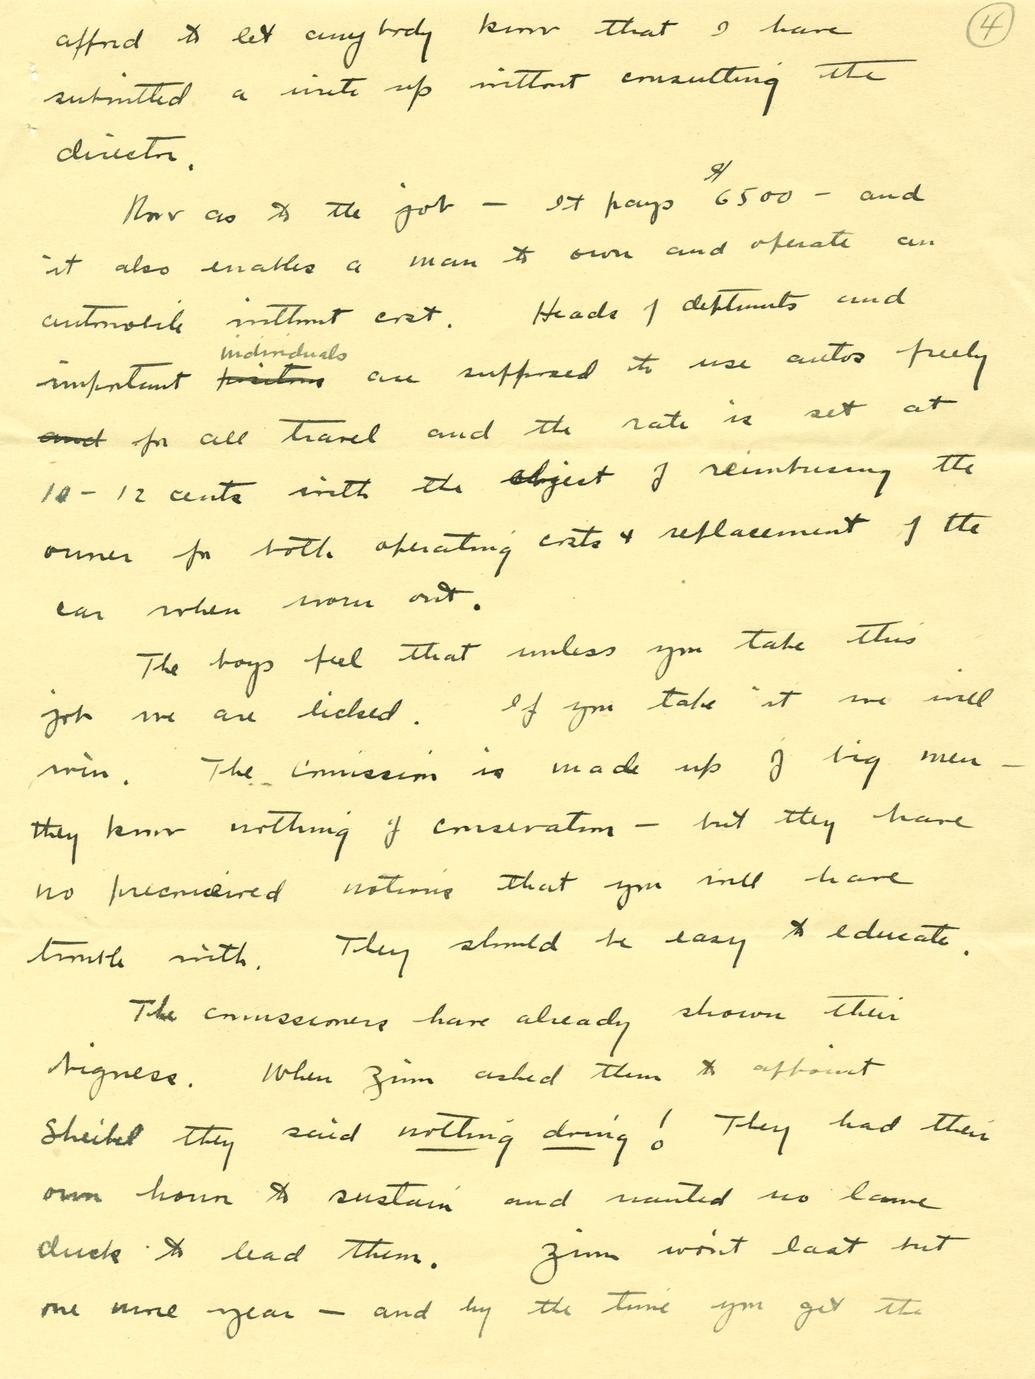 ④
afford to let anybody know that I have
submitted a write up without consulting the
director.
Now as to the job — It pays $6500 — and
it also enables a man to own and operate an
automobile without cost. Heads of deptments and
individuals
important positions are supposed to use autos freely
and for all travel and the rate is set at
10-12 cents with the object of reimbursing the
owner for both operating costs & replacement of the
car when worn out.
The boys feel that unless you take this
job we are licked. If you take it we will
win. The Comission is made up of big men —
they know nothing of conservation — but they have
no preconceived notions that you will have
trouble with. They should be easy to educate.
The commissioners have already shown their
bigness. When Zinn asked them to appoint
Sheibel they said nothing doing! They had their
own honor to sustain and wanted no lame
duck to lead them. Zinn won't last but
one more year — and by the time you get the